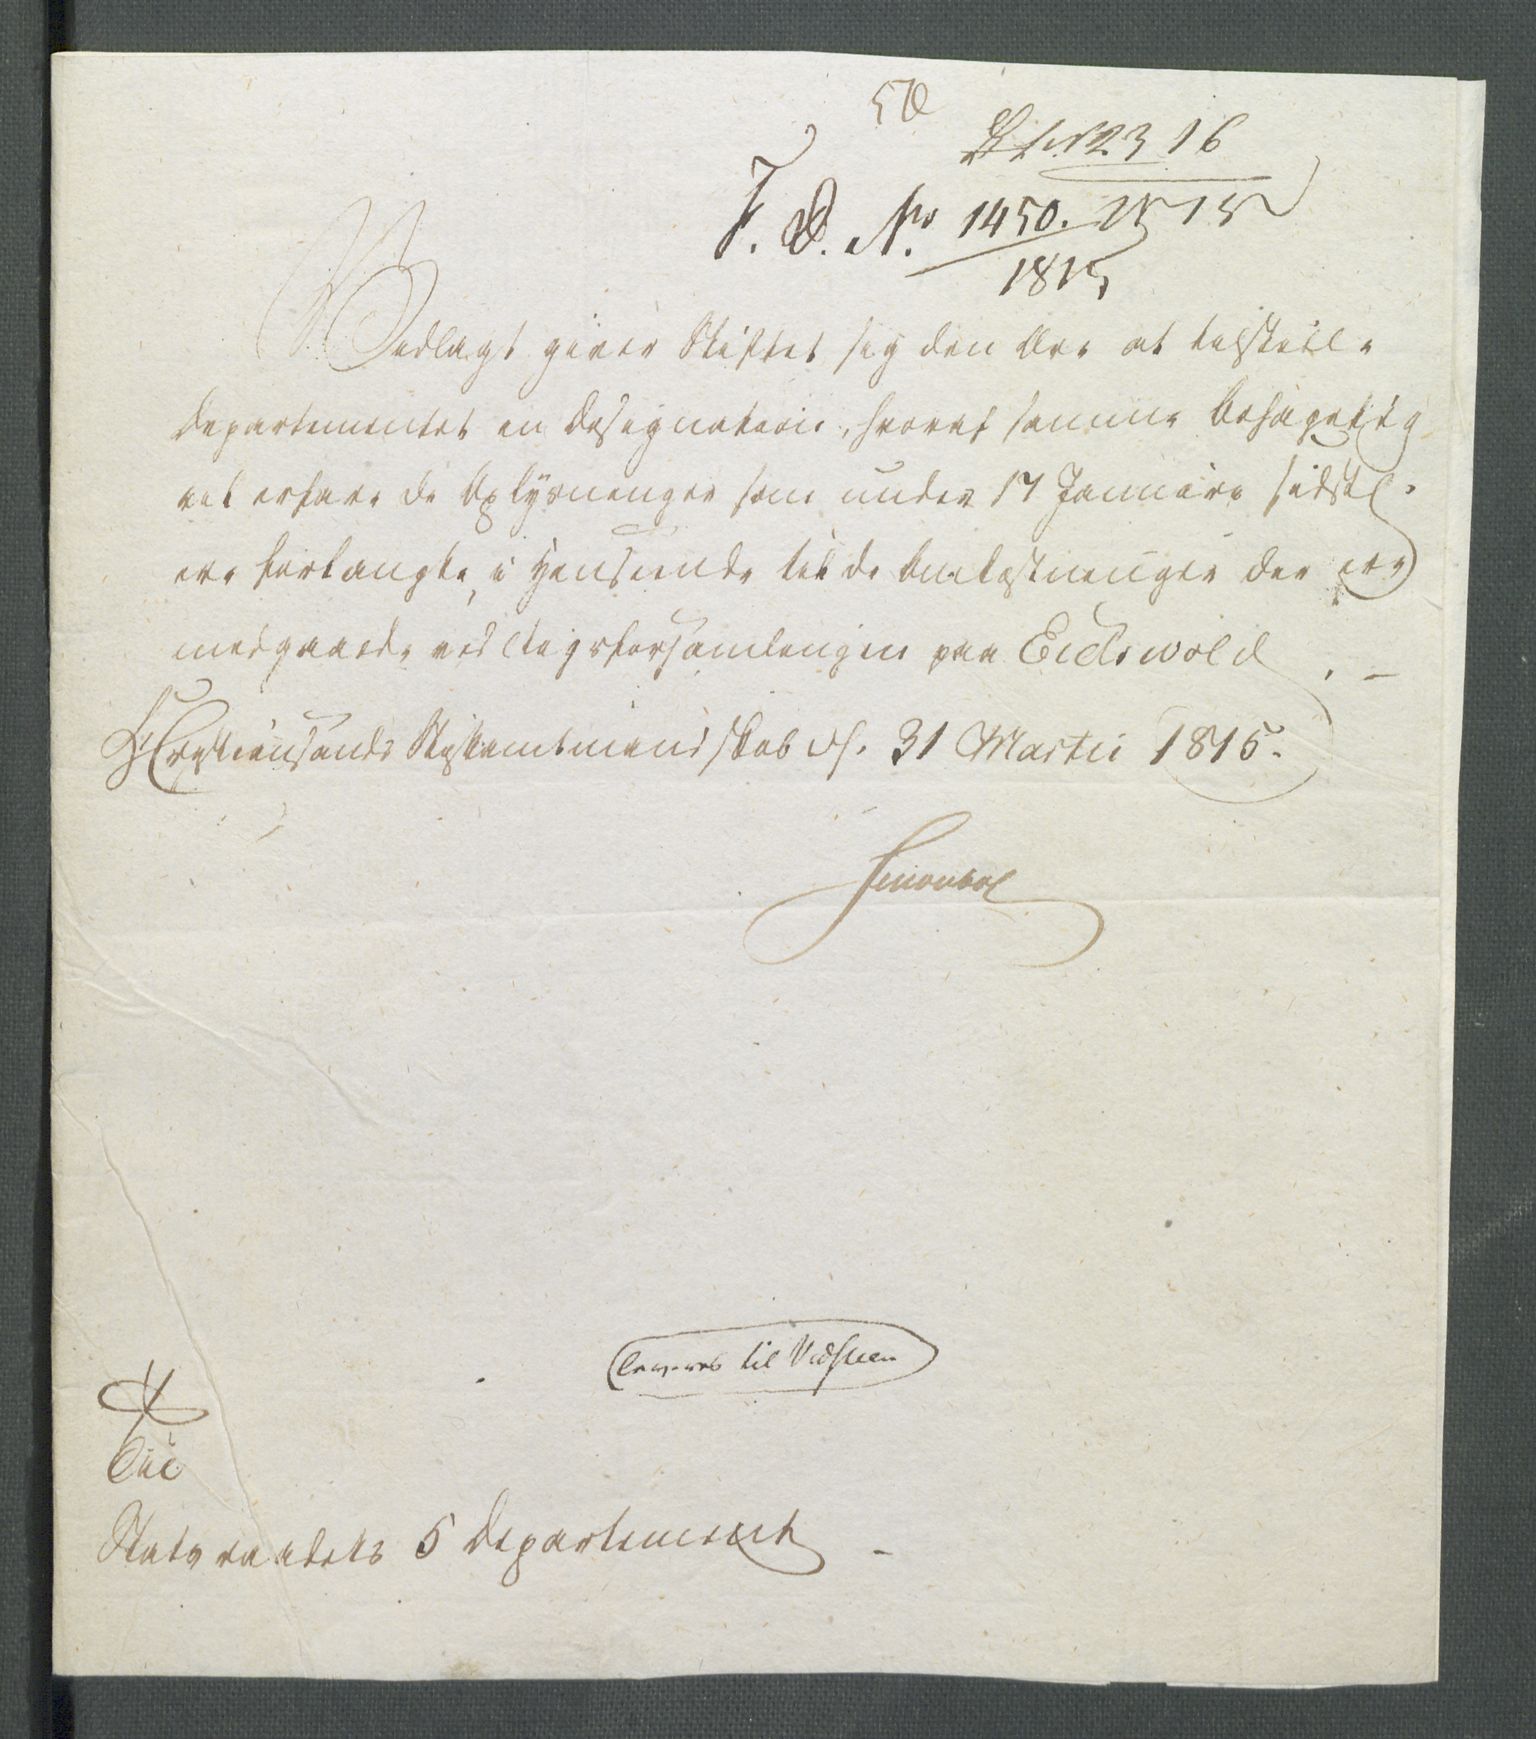 5 D
F. D. No. 1450.
1815
Vedlagt giver Stiftet sig den Ære at tilstille
Departementet en Designation, hvoraf samme behageligt
vil erfare de Oplysninger som under 17 Januari sidstl.
ere forlangte, i Henseende til de Omkostninger der ere
medgaaede ved Rigsforsamlingen paa Eidswold. –
Christiansands Stiftamtmandskab d. 31 Martii 1815.
Leveres til
Til
Statsraadets 5 Departement –